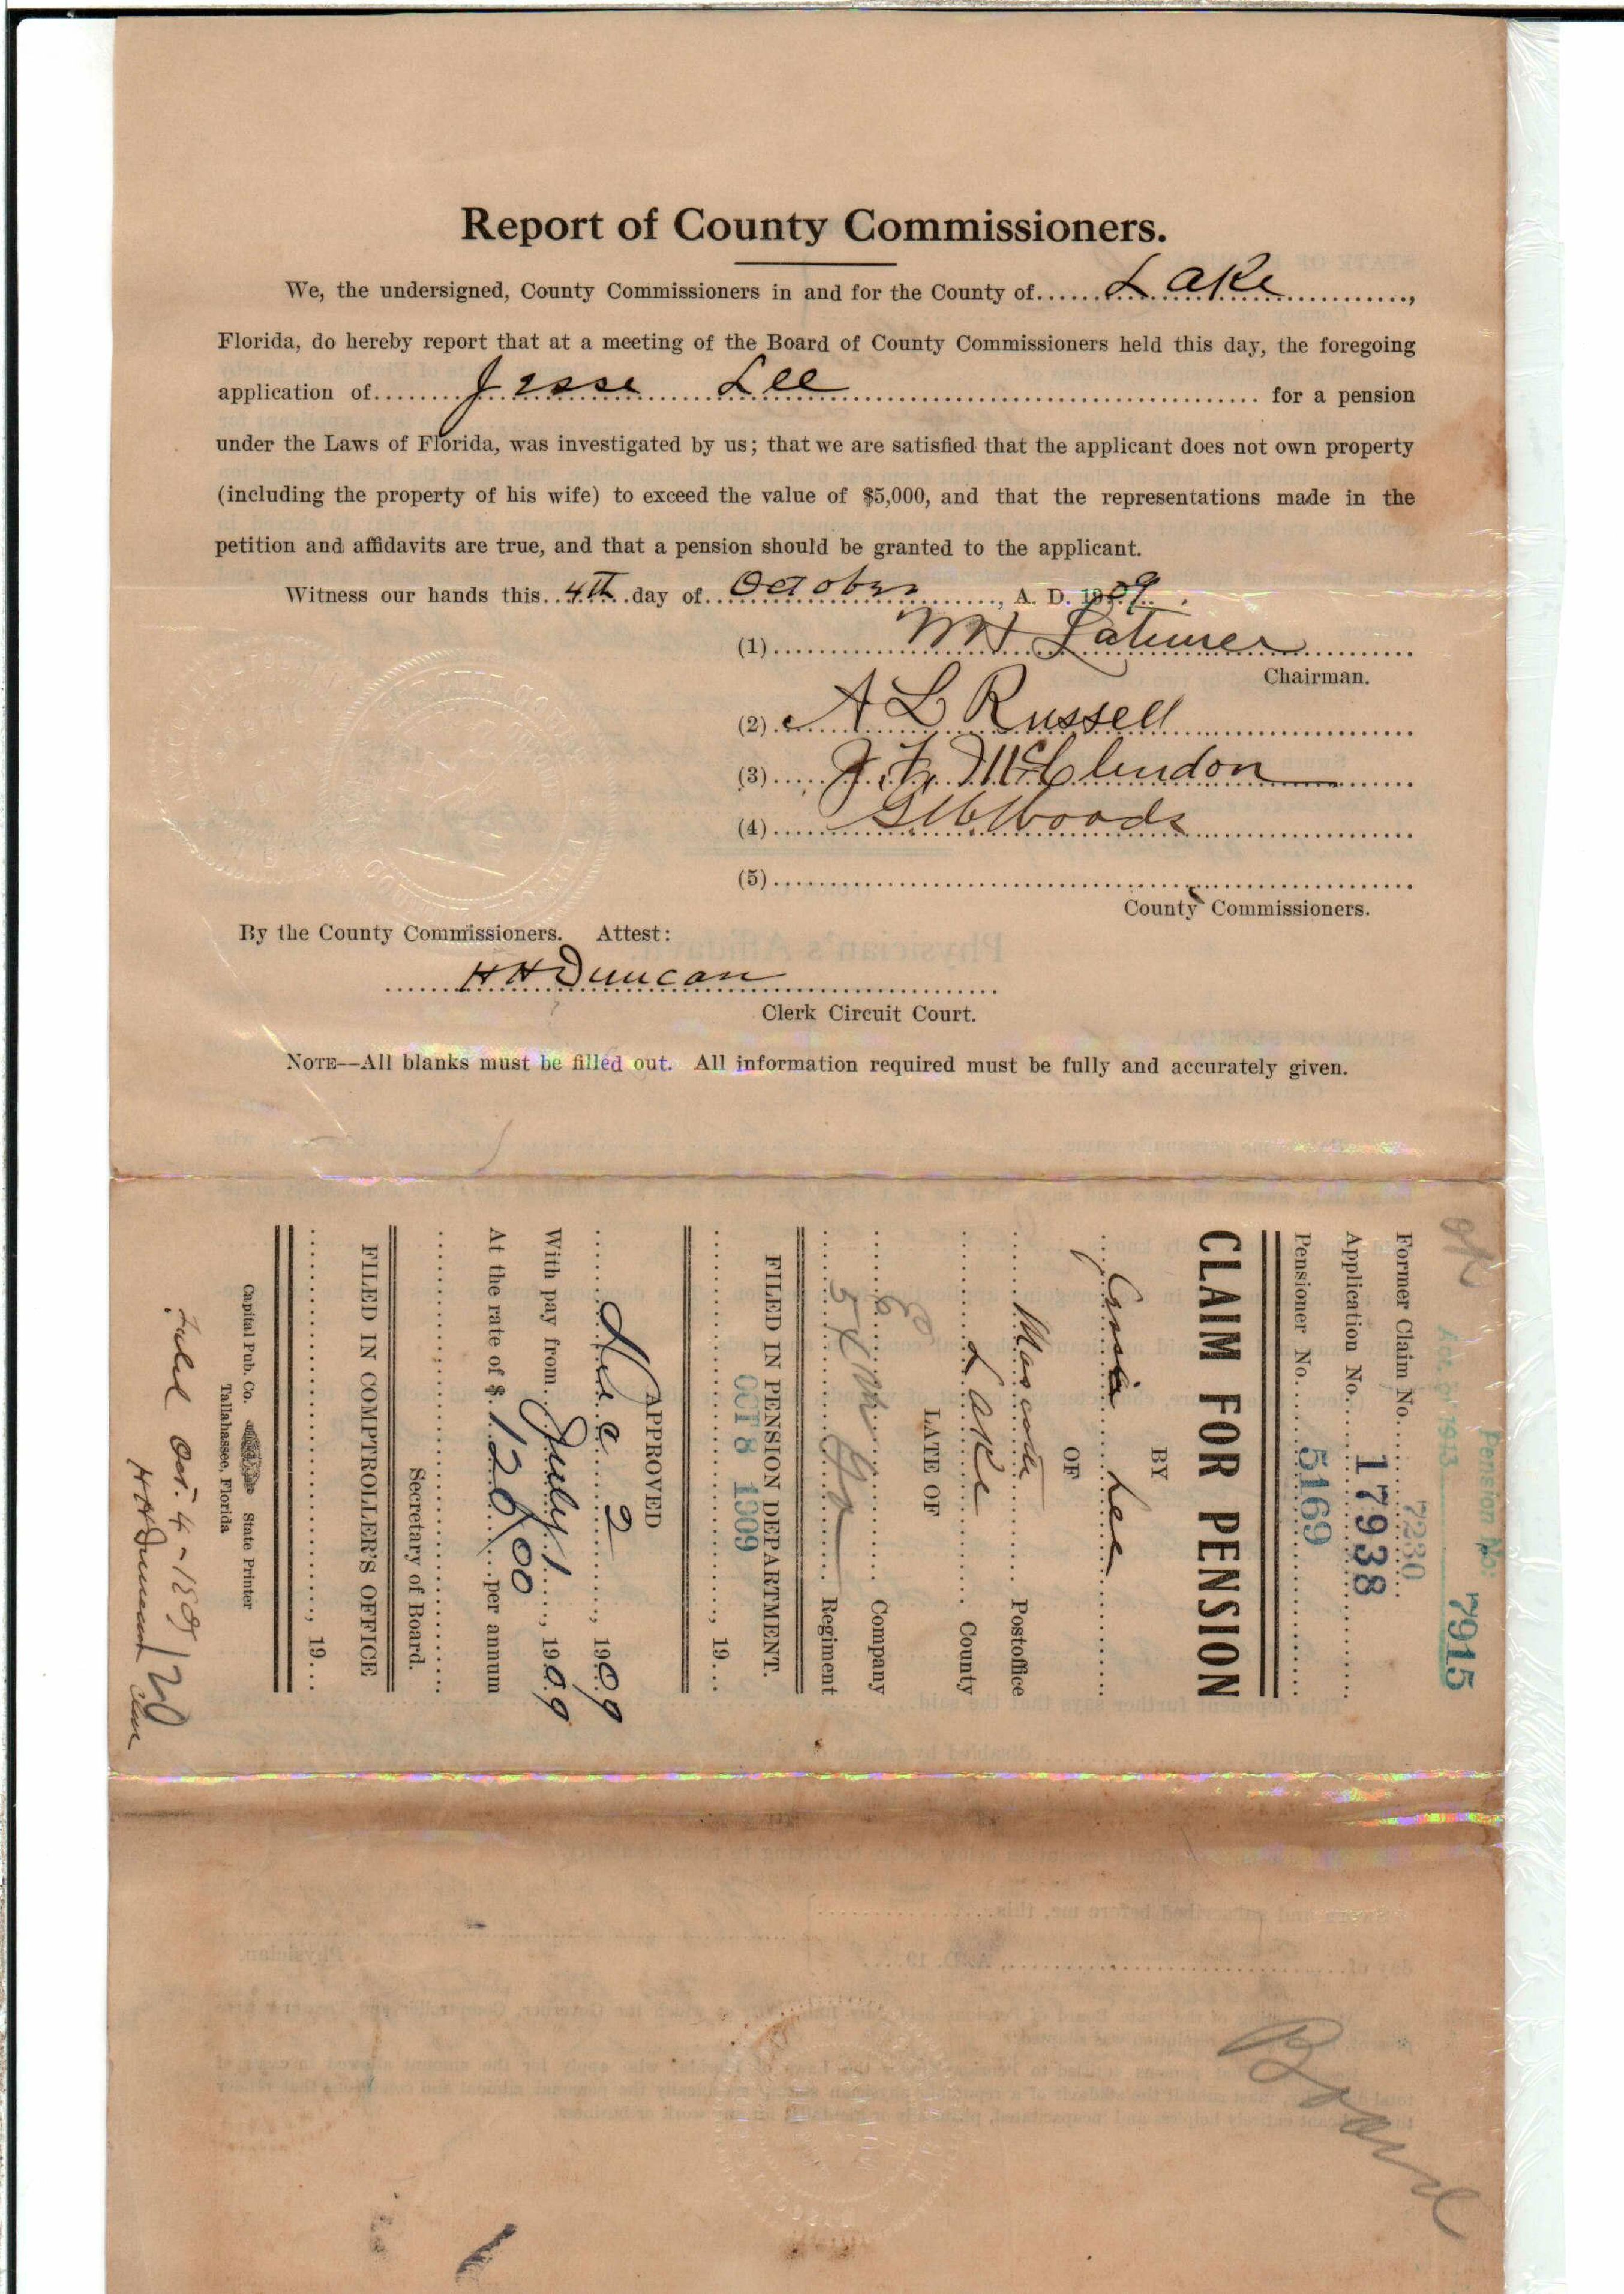 Report of County Commissioners.
We, the undersigned, County Commissioners in and for the County of......Lake..............,
Florida, do hereby report that at a meeting of the Board of County Commissioners held this day, the foregoing
application of........Jesse Lee........ for a pension
under the Laws of Florida, was investigated by us; that we are satisfied that the applicant does not own property
(including the property of his wife) to exceed the value of $5,000, and that the representations made in the
petition and affidavits are true, and that a pension should be granted to the applicant.
Witness our hands this..4th..day of..October........, A. D. 1909.
(1) M H Latimer
Chairman.
(2) A L Russell
(3) McClendon
(4) Woods
(5)
County Commissioners.
By the County Commissioners. Attest:
H H Duncan
Clerk Circuit Court.
NOTE—All blanks must be filled out. All information required must be fully and accurately given.
Pension No: 7915
Act of 1913
Former Claim No. 7230
Application No. 17938
Pensioner No. 5169
CLAIM FOR PENSION
BY
Lee
OF
Mascotte Postoffice
Lake County
LATE OF
Company
5 Regiment
FILED IN PENSION DEPARTMENT.
OCT 8 1909
19...
APPROVED
Dec 2, 1909
With pay from July 1, 1909
At the rate of $ 120/00 per annum
Secretary of Board.
FILED IN COMPTROLLER'S OFFICE
, 19...
Capital Pub. Co. State Printer
Tallahassee, Florida
Filed Oct. 4 - 1909
H H Duncan
Board